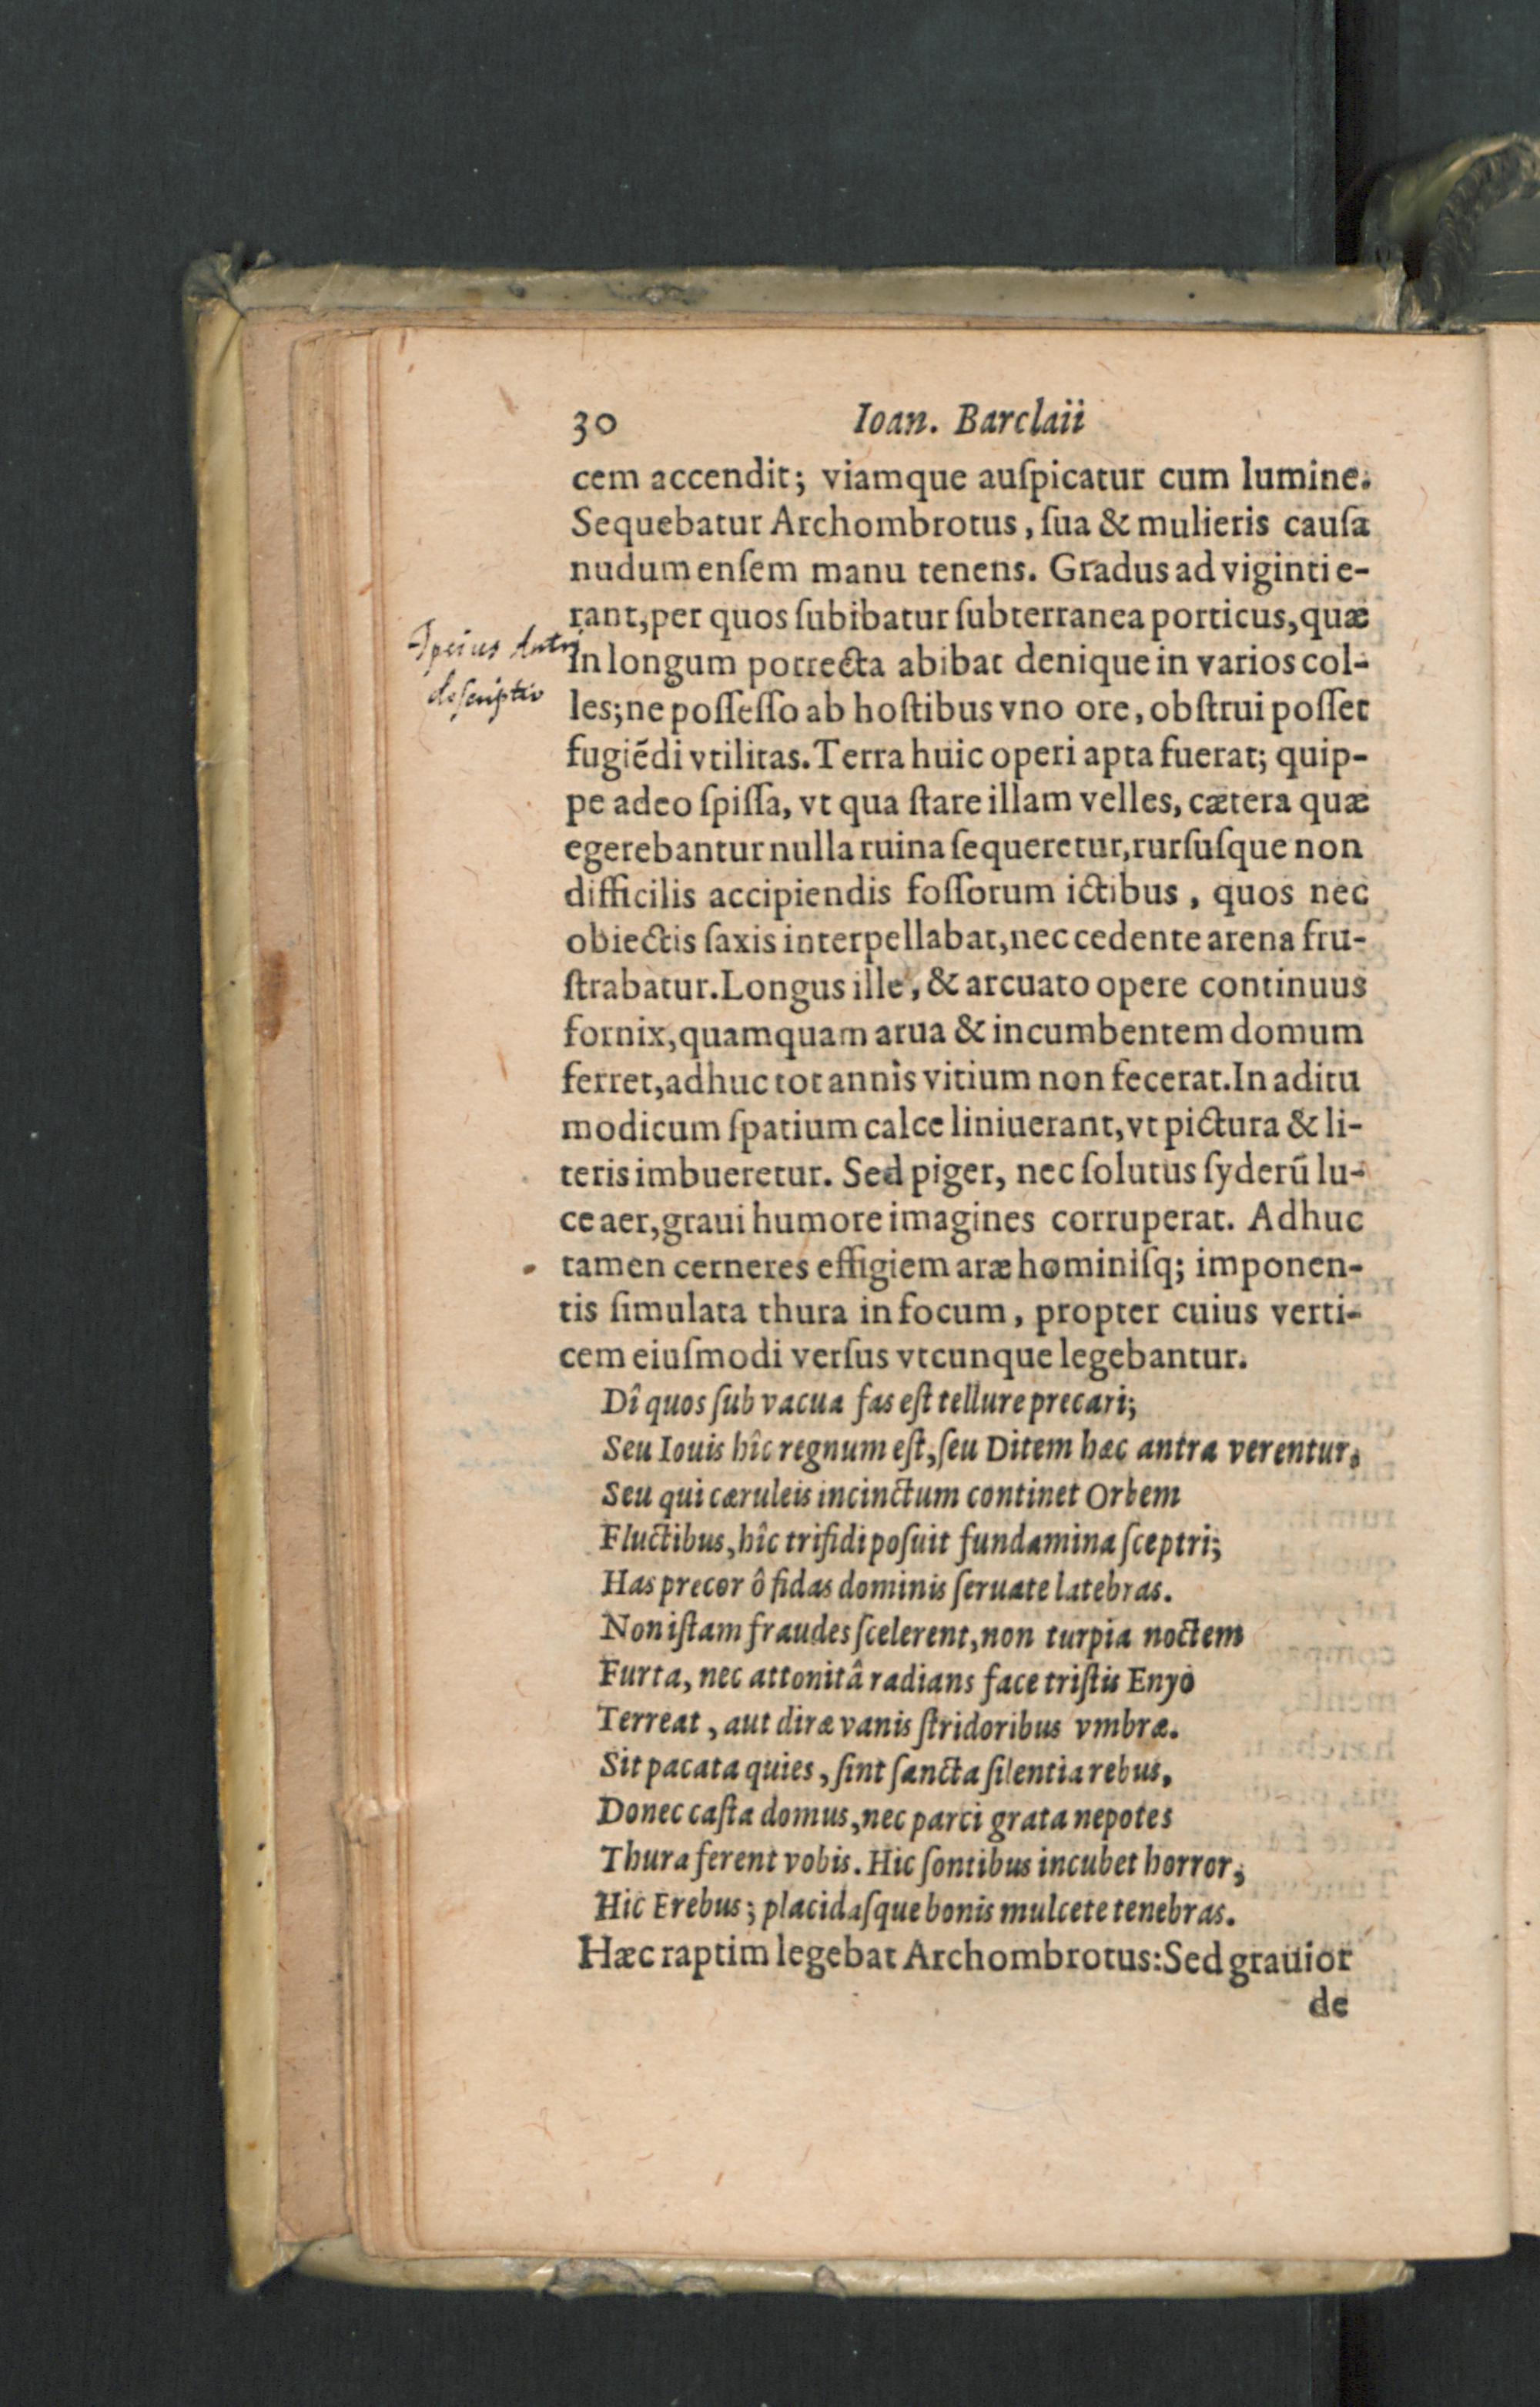 30 Ioan. Barclaii
cem accendit; viamque auſpicatur cum lumine.
Sequebatur Archombrotus, ſua & mulieris cauſa
nudum enſem manu tenens. Gradus ad viginti e-
rant, per quos ſubibatur ſubterranea porticus, quæ
in longum porrecta abibat denique in varios col-
les; ne poſſeſſo ab hoſtibus vno ore, obſtrui poſſet
fugiēdi vtilitas. Terra huic operi apta fuerat; quip-
pe adeo ſpiſſa, vt qua ſtare illam velles, cætera quæ
egerebantur nulla ruina ſequeretur, rurſuſque non
difficilis accipiendis foſſorum ictibus, quos nec
obiectis ſaxis interpellabat, nec cedente arena fru-
ſtrabatur. Longus ille, & arcuato opere continuus
fornix, quamquam arua & incumbentem domum
ferret, adhuc tot annis vitium non fecerat. In aditu
modicum ſpatium calce liniuerant, vt pictura & li-
teris imbueretur. Sed piger, nec ſolutus ſyderū lu-
ce aer, graui humore imagines corruperat. Adhuc
tamen cerneres effigiem aræ hominiſq; imponen-
tis ſimulata thura in focum, propter cuius verti-
cem eiuſmodi verſus vtcunque legebantur.
Dî quos ſub vacua fas eſt tellure precari;
Seu Iouis hîc regnum eſt, ſeu Ditem hæc antra verentur,
Seu qui cæruleis incinctum continet Orbem
Fluctibus, hîc trifidi poſuit fundamina ſceptri;
Has precor ô fidas dominis ſeruate latebras.
Non iſtam fraudes ſcelerent, non turpia noctem
Furta, nec attonitâ radians face triſtis Enyo
Terreat, aut diræ vanis ſtridoribus vmbræ.
Sit pacata quies, ſint ſancta ſilentia rebus,
Donec caſta domus, nec parci grata nepotes
Thura ferent vobis. Hic ſontibus incubet horror,
Hic Erebus; placidaſque bonis mulcete tenebras.
Hæc raptim legebat Archombrotus: Sed grauior
de
deſcriptio